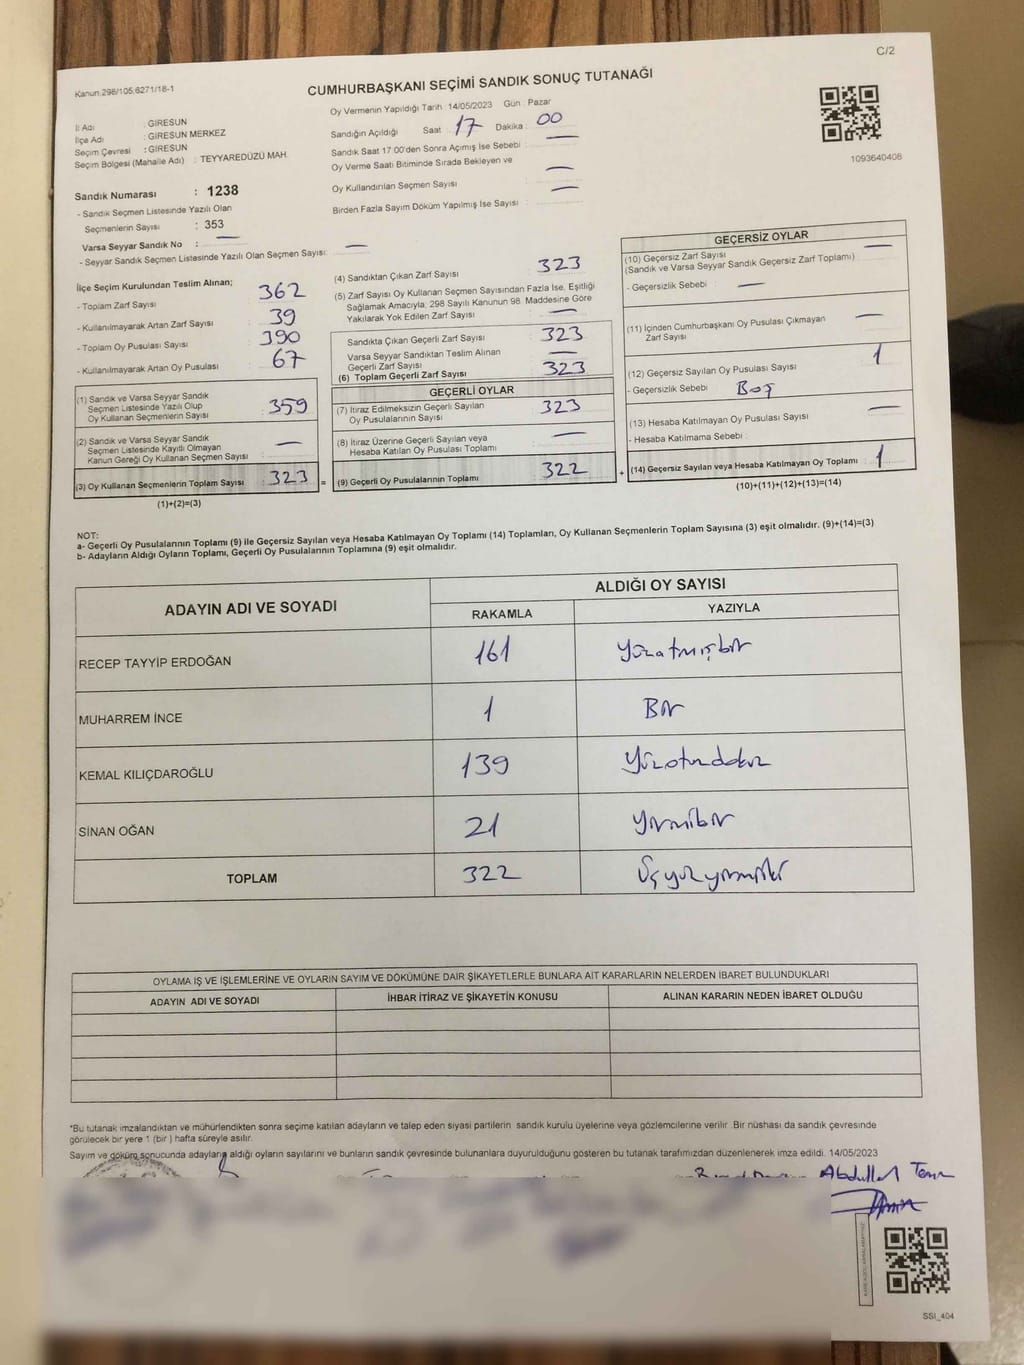 C/2
Kanun:298/105;6271/18-1
CUMHURBAŞKANI SEÇİMİ SANDIK SONUÇ TUTANAĞI
İl Adı : GİRESUN
İlçe Adı : GİRESUN MERKEZ
Seçim Çevresi : GİRESUN
Seçim Bölgesi (Mahalle Adı) : TEYYAREDÜZÜ MAH.
Sandık Numarası : 1238
- Sandık Seçmen Listesinde Yazılı Olan
Seçmenlerin Sayısı : 353
Varsa Seyyar Sandık No : —
- Seyyar Sandık Seçmen Listesinde Yazılı Olan Seçmen Sayısı: —
Oy Vermenin Yapıldığı Tarih : 14/05/2023 Gün : Pazar
Sandığın Açıldığı Saat : 17 Dakika : 00
Sandık Saat 17:00'den Sonra Açımış İse Sebebi : —
Oy Verme Saati Bitiminde Sırada Bekleyen ve
Oy Kullandırılan Seçmen Sayısı —
Birden Fazla Sayım Döküm Yapılmış İse Sayısı : —
1093640408
İlçe Seçim Kurulundan Teslim Alınan;
- Toplam Zarf Sayısı 362
- Kullanılmayarak Artan Zarf Sayısı 39
- Toplam Oy Pusulası Sayısı 390
- Kullanılmayarak Artan Oy Pusulası 67
(1) Sandık ve Varsa Seyyar Sandık
Seçmen Listesinde Yazılı Olup
Oy Kullanan Seçmenlerin Sayısı 359
(2) Sandık ve Varsa Seyyar Sandık
Seçmen Listesinde Kayıtlı Olmayan
Kanun Gereği Oy Kullanan Seçmen Sayısı —
(3) Oy Kullanan Seçmenlerin Toplam Sayısı 323 =
(1)+(2)=(3)
(4) Sandıktan Çıkan Zarf Sayısı 323
(5) Zarf Sayısı Oy Kullanan Seçmen Sayısından Fazla İse, Eşitliği
Sağlamak Amacıyla, 298 Sayılı Kanunun 98. Maddesine Göre
Yakılarak Yok Edilen Zarf Sayısı —
Sandıkta Çıkan Geçerli Zarf Sayısı 323
Varsa Seyyar Sandıktan Teslim Alınan
Geçerli Zarf Sayısı —
(6) Toplam Geçerli Zarf Sayısı 323
GEÇERLİ OYLAR
(7) İtiraz Edilmeksizin Geçerli Sayılan
Oy Pusulalarının Sayısı 323
(8) İtiraz Üzerine Geçerli Sayılan veya
Hesaba Katılan Oy Pusulası Toplamı —
(9) Geçerli Oy Pusulalarının Toplamı 322 +
GEÇERSİZ OYLAR
(10) Geçersiz Zarf Sayısı —
(Sandık ve Varsa Seyyar Sandık Geçersiz Zarf Toplamı)
- Geçersizlik Sebebi : —
(11) İçinden Cumhurbaşkanı Oy Pusulası Çıkmayan
Zarf Sayısı —
(12) Geçersiz Sayılan Oy Pusulası Sayısı 1
- Geçersizlik Sebebi : Boş
(13) Hesaba Katılmayan Oy Pusulası Sayısı —
- Hesaba Katılmama Sebebi :
(14) Geçersiz Sayılan veya Hesaba Katılmayan Oy Toplamı 1
(10)+(11)+(12)+(13)=(14)
NOT:
a- Geçerli Oy Pusulalarının Toplamı (9) ile Geçersiz Sayılan veya Hesaba Katılmayan Oy Toplamı (14) Toplamları, Oy Kullanan Seçmenlerin Toplam Sayısına (3) eşit olmalıdır. (9)+(14)=(3)
b- Adayların Aldığı Oyların Toplamı, Geçerli Oy Pusulalarının Toplamına (9) eşit olmalıdır.
ADAYIN ADI VE SOYADI
ALDIĞI OY SAYISI
RAKAMLA YAZIYLA
RECEP TAYYİP ERDOĞAN 161 Yüzatmışbir
MUHARREM İNCE 1 Bir
KEMAL KILIÇDAROĞLU 139 Yüzotuzdokuz
SİNAN OĞAN 21 Yirmibir
TOPLAM 322 Üçyüzyirmiiki
OYLAMA İŞ VE İŞLEMLERİNE VE OYLARIN SAYIM VE DÖKÜMÜNE DAİR ŞİKAYETLERLE BUNLARA AİT KARARLARIN NELERDEN İBARET BULUNDUKLARI
ADAYIN ADI VE SOYADI İHBAR İTİRAZ VE ŞİKAYETİN KONUSU ALINAN KARARIN NEDEN İBARET OLDUĞU
*Bu tutanak imzalandıktan ve mühürlendikten sonra seçime katılan adayların ve talep eden siyasi partilerin sandık kurulu üyelerine veya gözlemcilerine verilir. Bir nüshası da sandık çevresinde
görülecek bir yere 1 (bir) hafta süreyle asılır.
Sayım ve döküm sonucunda adayların aldığı oyların sayılarını ve bunların sandık çevresinde bulunanlara duyurulduğunu gösteren bu tutanak tarafımızdan düzenlenerek imza edildi. 14/05/2023
Abdullah
SSI_404